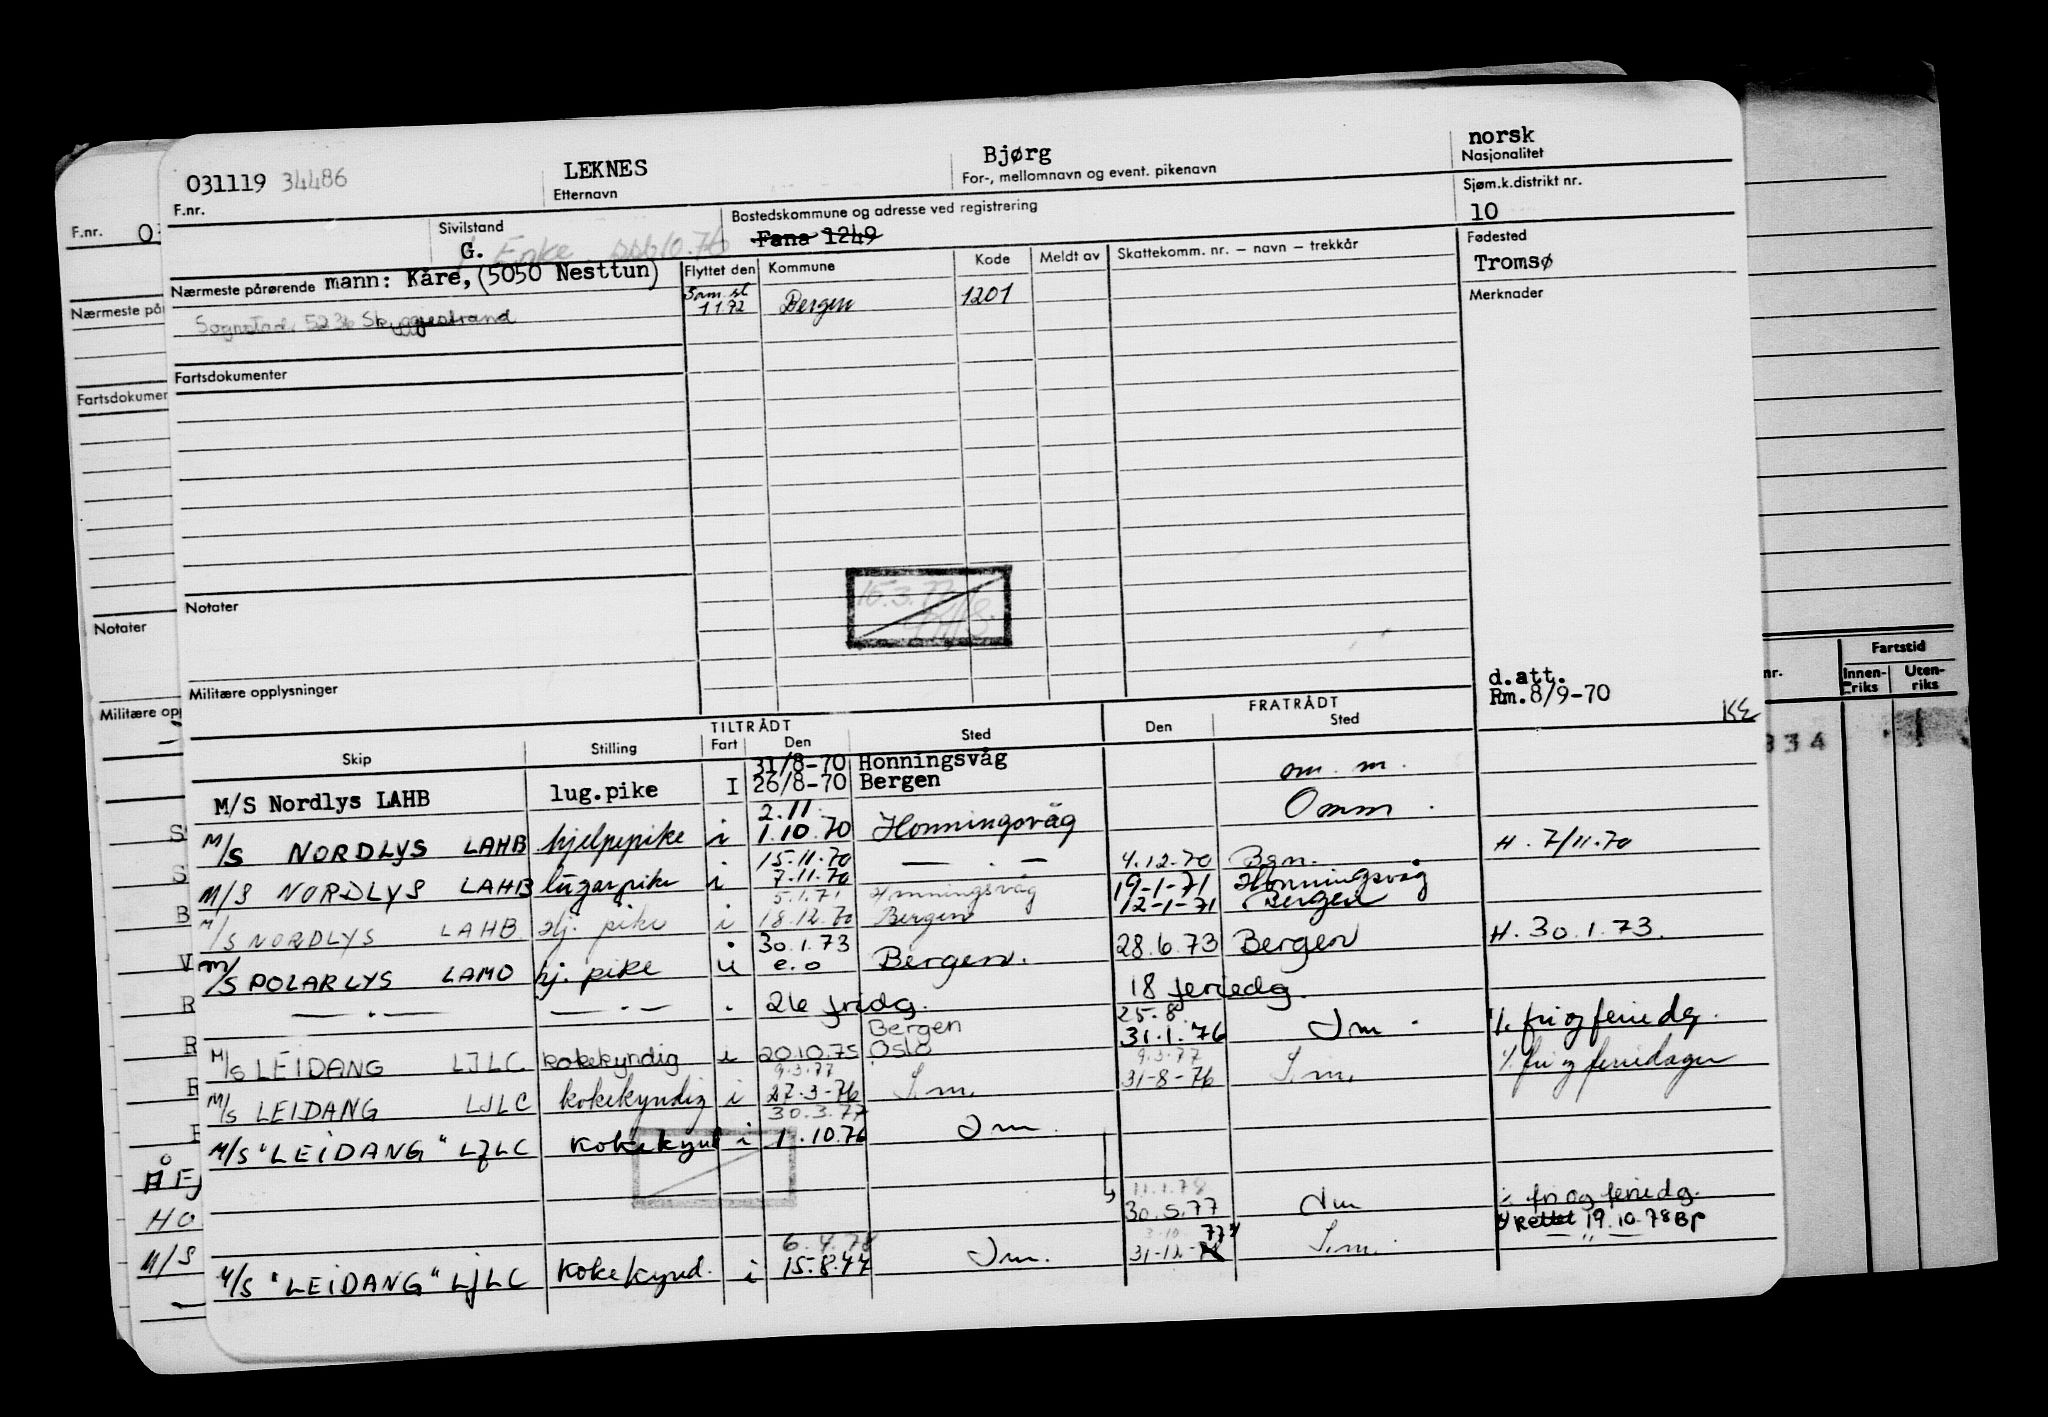 031119 34486
F.nr.
LEKNES
Etternavn
Bjørg
For-, mellomnavn og event. pikenavn
norsk
Nasjonalitet
Sivilstand
G. Enke
Bostedskommune og adresse ved registrering
Fana 1249
Sjøm.k.distrikt nr.
10
Nærmeste pårørende mann: Kåre, (5050 Nesttun)
Skjeggestrand
Flyttet den Kommune Kode Meldt av Skattekomm. nr. – navn – trekkår
Sam.st
1.1.72 Bergen 1201
Fødested
Tromsø
Merknader
Fartsdokumenter
Notater
15.3.77
Militære opplysninger
d.att.
Rm.8/9-70
KE
TILTRÅDT FRATRÅDT
Skip Stilling Fart Den Sted Den Sted
31/8-70 Honningsvåg
M/S Nordlys LAHB lug.pike I 26/8-70 Bergen om. m.
2.11.
M/S NORDLYS LAHB hjelpepike i 1.10.70 Honningsvåg Omm
15.11.70 — . — 4.12.70 Bgn. H. 7/11.70
M/S NORDLYS LAHB lugarpike i 7.11.70 19-1-71 Honningsvåg
5.1.71 Honningsvåg 12-1-71 Bergen
M/S NORDLYS LAHB hj. pike i 18.12.70 Bergen
30.1.73 28.6.73 Bergen H. 30.1.73.
M/S POLARLYS LAMO hj. pike u e.o Bergen.
— . — — . — 26 fridg. 18 feriedg.
Bergen 25.8
M/S LEIDANG LJLC kokekyndig i 20.10.75 Oslo 31.1.76 Im. % fri og feriedg.
9.3.77 9.3.77
M/S LEIDANG LJLC kokekyndig i 27.3-76 I.m. 31-8-76 I.m. % fri og feriedager
30.3.77
M/S "LEIDANG" LJLC kokekynd i 1.10.76 Im.
11.1.78
30.5.77 Im ÷ fri og feriedg.
Rettet 19.10.78 BP
6.4.78 3.10. 77
M/S "LEIDANG" LJLC kokekynd. i 15.8.77 Im. 31-12- I.m.
F.nr.
Nærmeste på
Fartsdokumen
Notater
Militære opp
Fartstid
nr. Innen-riks Uten-riks
334
M/S